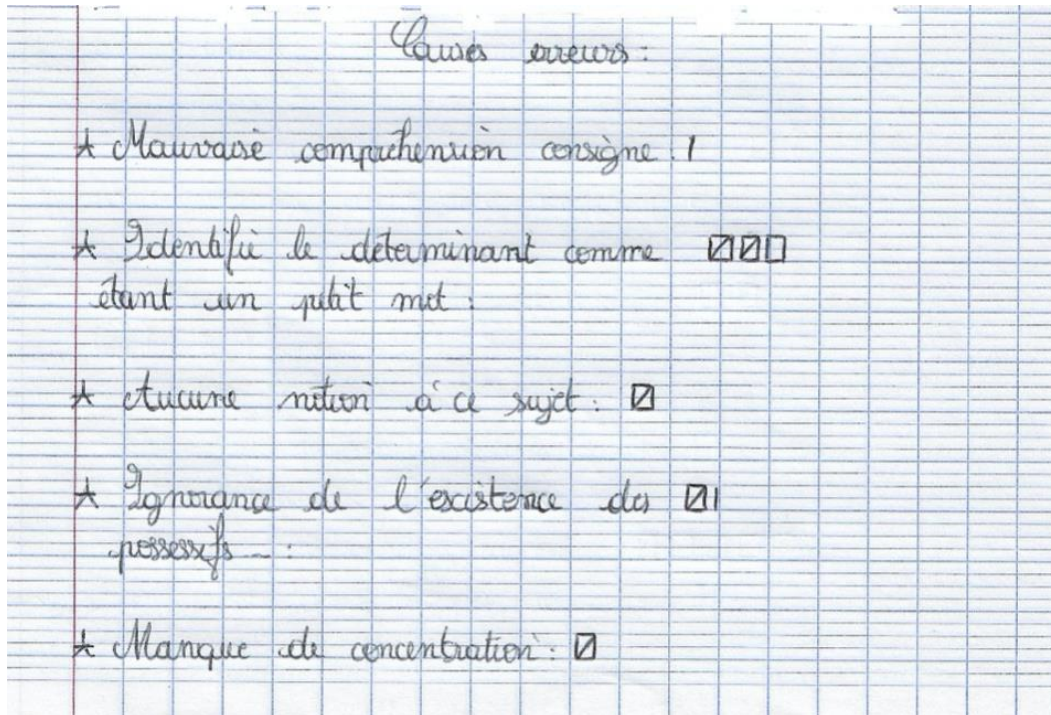 Causes erreurs :
* Mauvaise compréhension consigne : 1
* Identifié le déterminant comme
étant un petit mot :
* Aucune notion à ce sujet :
* Ignorance de l'existence des
possessifs - :
* Manque de concentration :